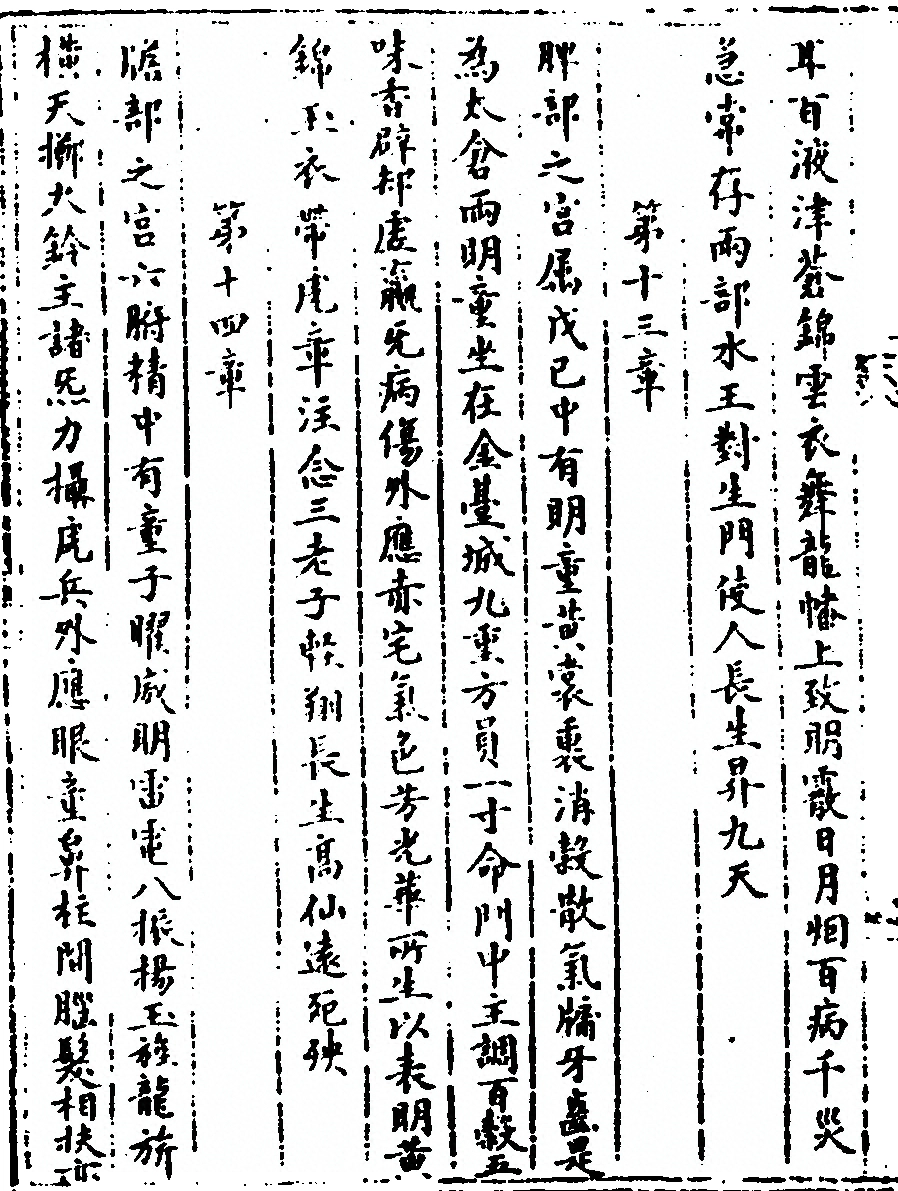 耳百液津蒼錦雲衣舞龍幡上致明霞日月烟百病千災
急常存兩部水王對生門使人長生昇九天
第十三章
脾部之宫屬戊己中有明童黄裳裏消榖散氣牙蟲是
為太倉兩明童坐在金臺城九重方員一寸命門中主調百榖五
味香辟却虚羸旡病傷外應赤宅氣色芳光華所生以表明黄
錦玉衣帶虎章注念三老子輕翔長生髙仙遠死殃
第十四章
膽部之宫六腑精中有童子曜威明雷電八振揚玉旌龍旂
横天擲火鈴主諸炁力攝虎兵外應眼童鼻柱間腦髮相扶